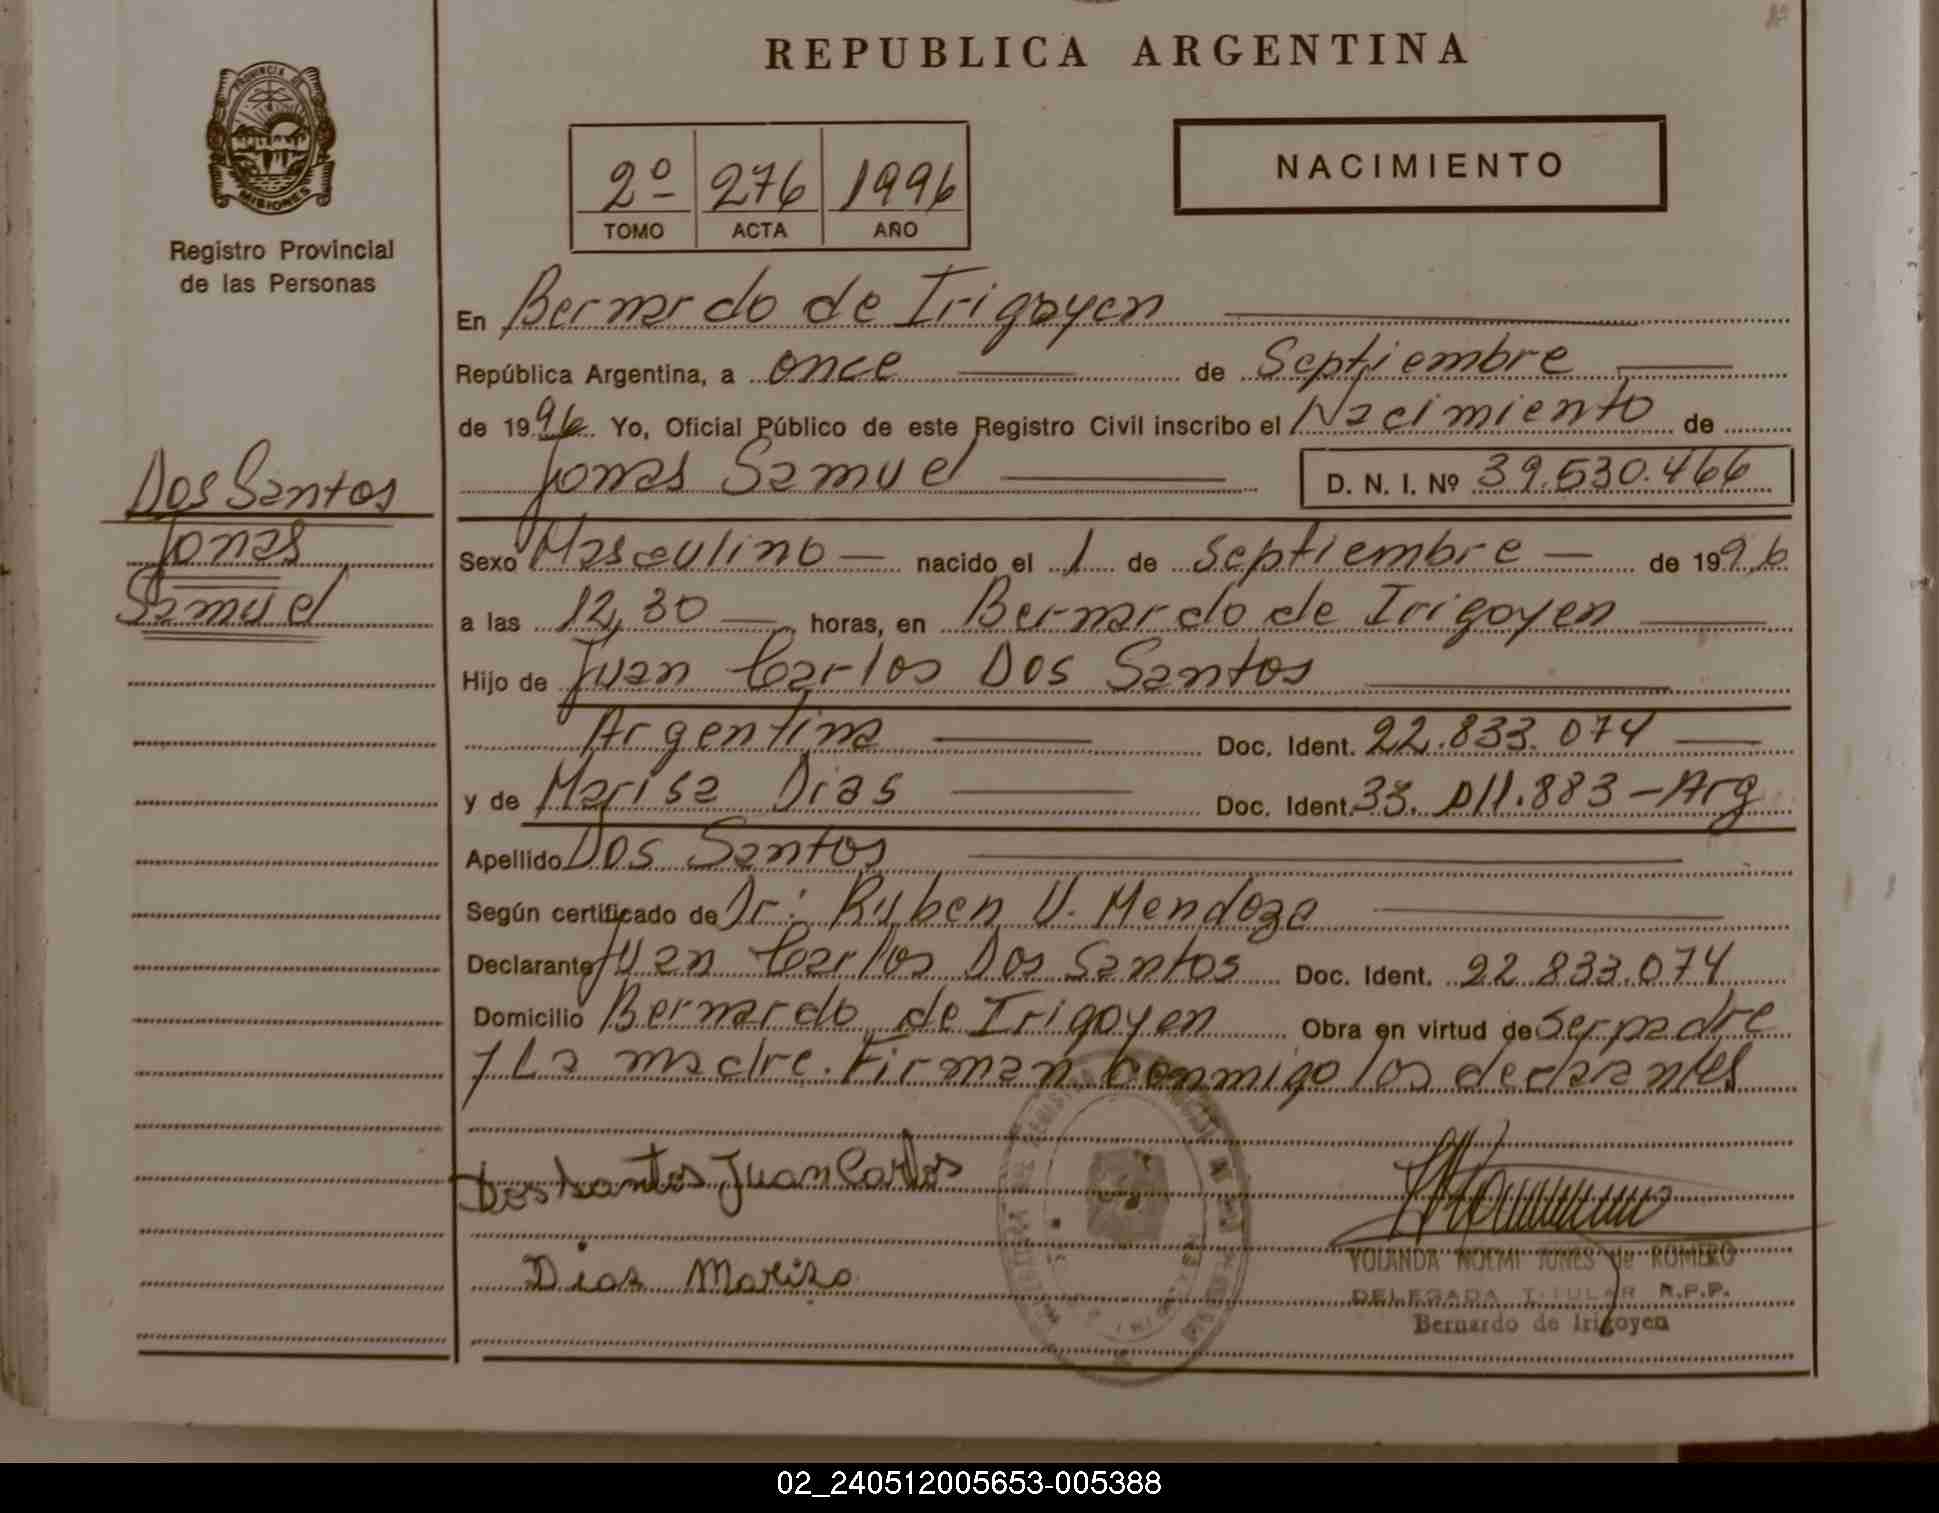 REPUBLICA ARGENTINA
PROVINCIA DE
MISIONES
Registro Provincial
de las Personas
2º 276 1996
TOMO ACTA AÑO
NACIMIENTO
En Bernardo de Irigoyen
República Argentina, a once de Septiembre
de 1996 Yo, Oficial Público de este Registro Civil inscribo el Nacimiento de
Jonas Samuel D. N. I. Nº 39.530.466
Dos Santos
Jonas
Samuel
Sexo Masculino nacido el 1 de Septiembre de 1996
a las 12,30 horas, en Bernardo de Irigoyen
Hijo de Juan Carlos Dos Santos
Argentina Doc. Ident. 22.833.074
y de Marisa Dias Doc. Ident. 33.011.883 - Arg
Apellido Dos Santos
Según certificado de Dr: Ruben V. Mendoza
Declarante Juan Carlos Dos Santos Doc. Ident. 22.833.074
Domicilio Bernardo de Irigoyen Obra en virtud de ser padre
y La madre. Firman conmigo los declarantes
Dos santos Juan Carlos
Dias Mariza
YOLANDA NOEMI JONES de ROMERO
DELEGADA TITULAR R.P.P.
Bernardo de Irigoyen
02_240512005653-005388